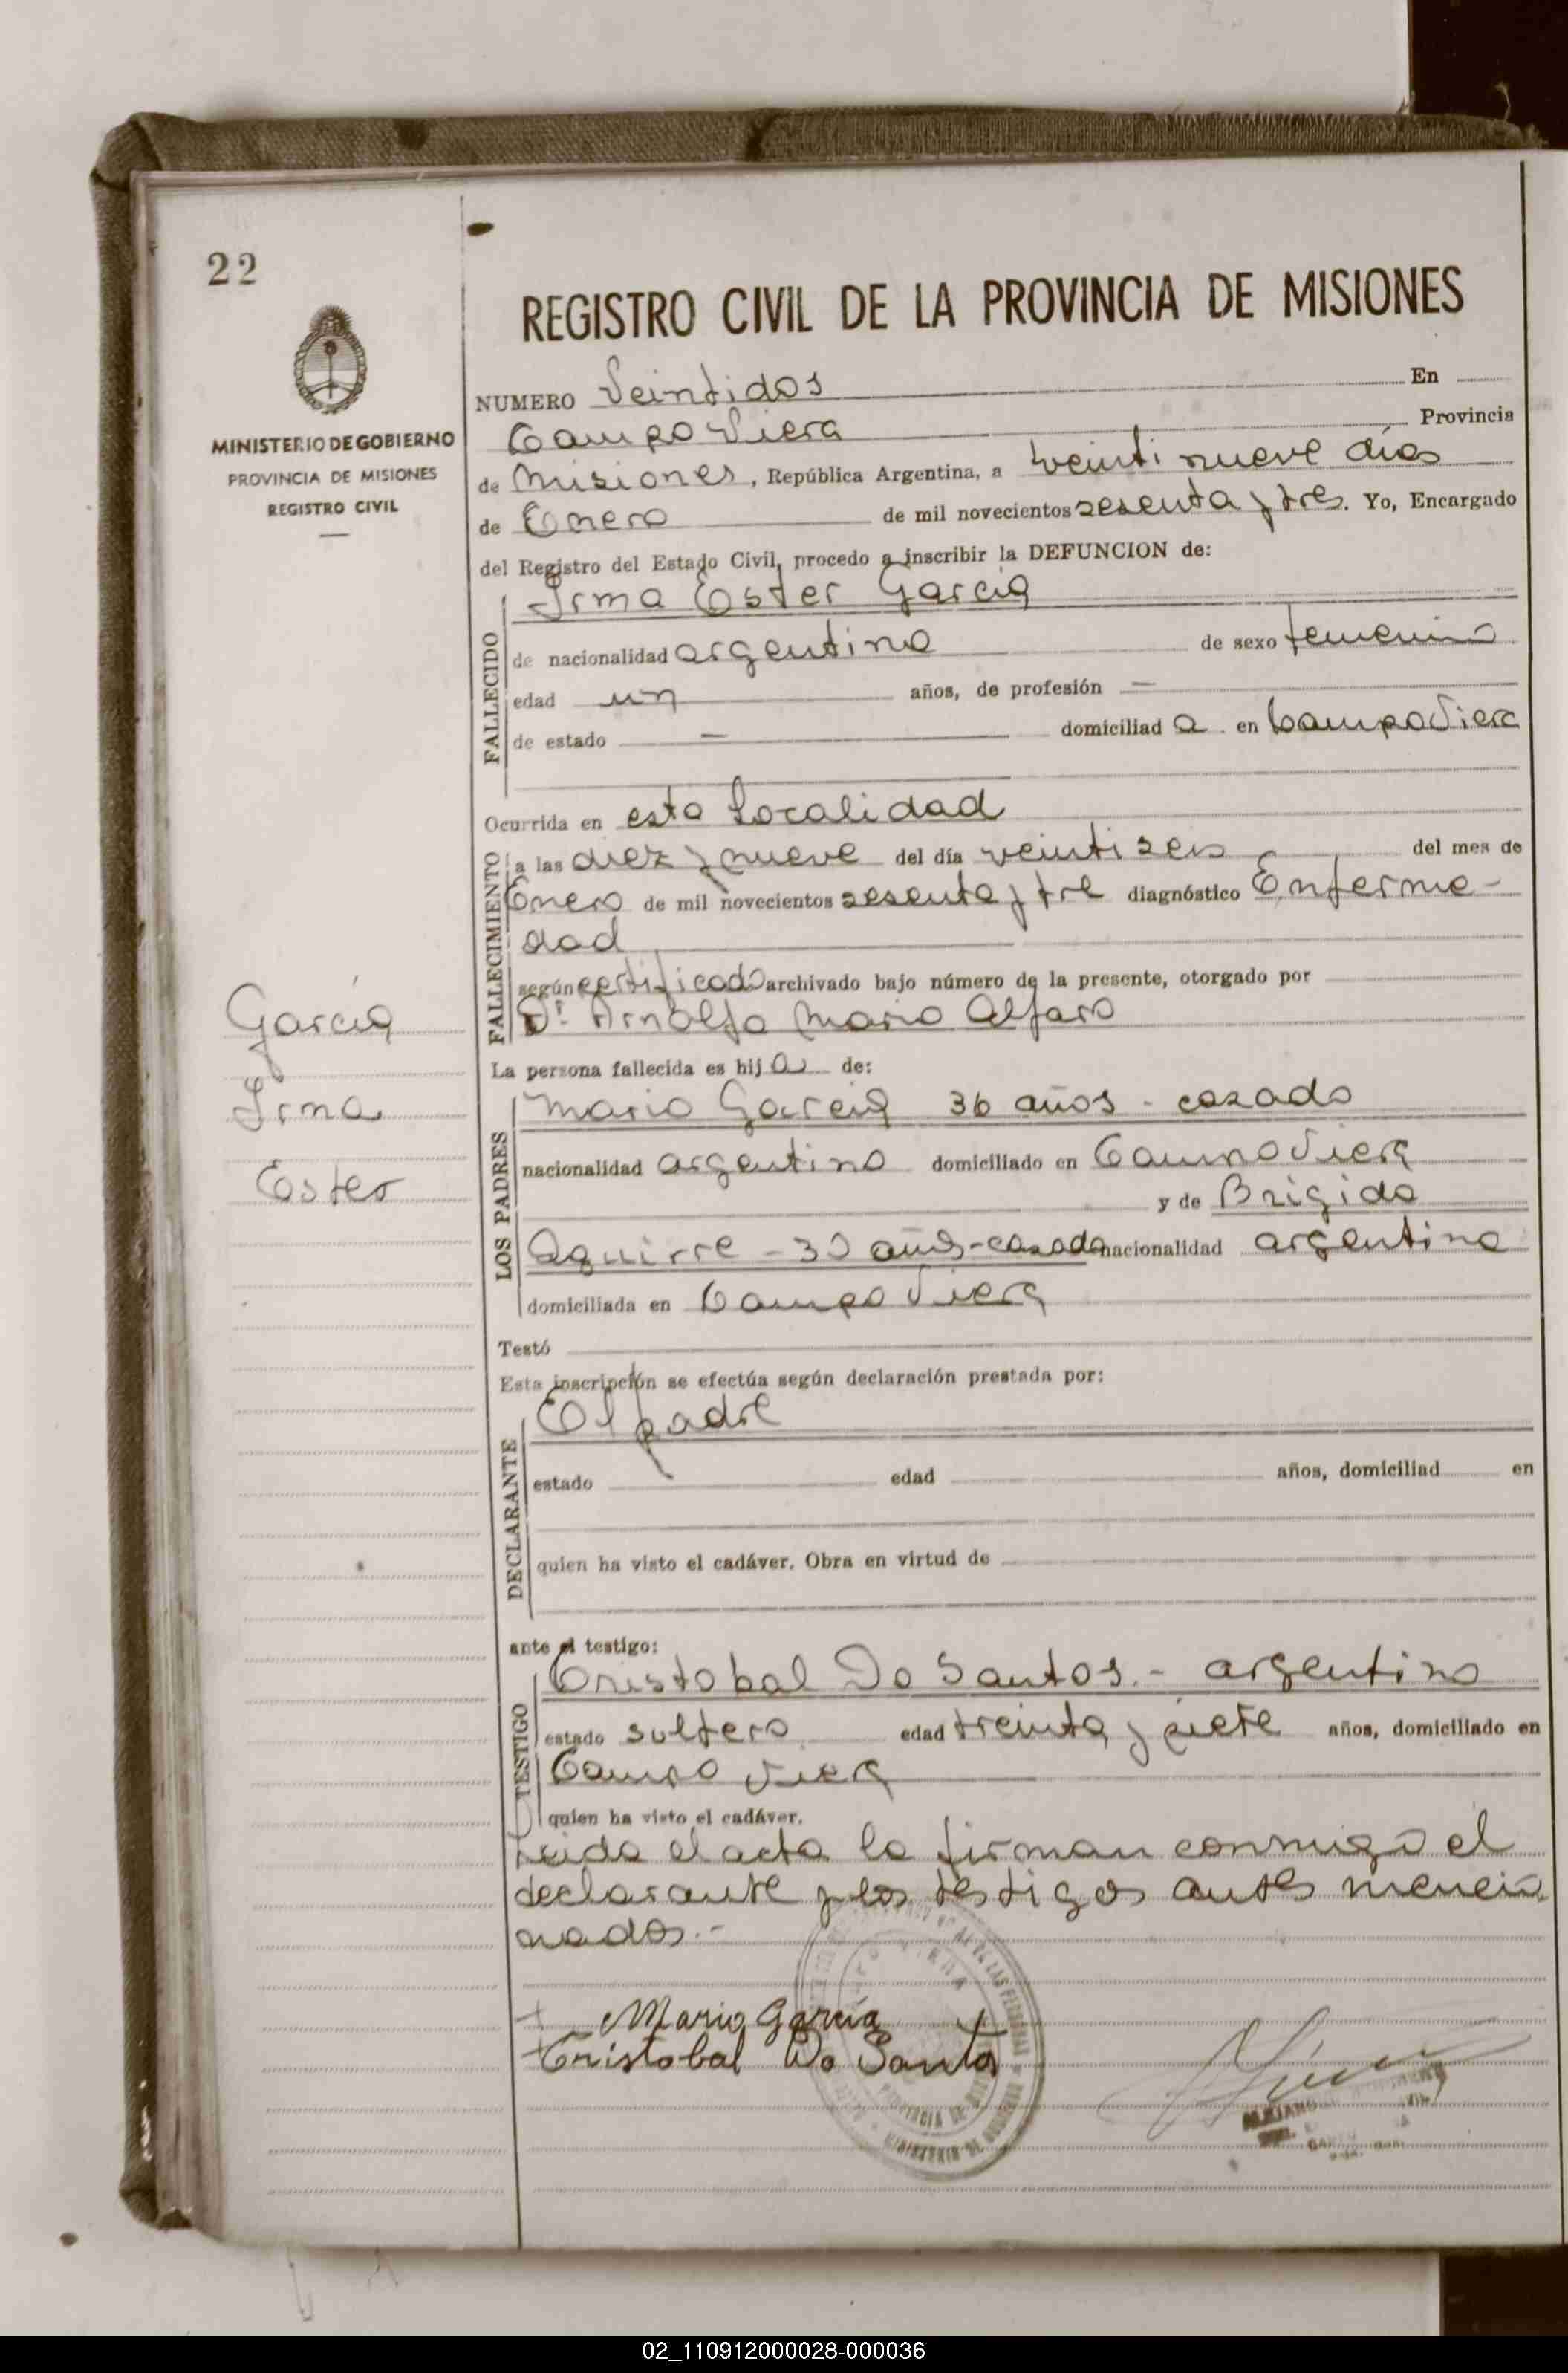 22
MINISTERIO DE GOBIERNO
PROVINCIA DE MISIONES
REGISTRO CIVIL
García
Irma
Ester
REGISTRO CIVIL DE LA PROVINCIA DE MISIONES
NUMERO Veintidos En
Campo Viera Provincia
de Misiones, República Argentina, a veinti nueve días
de Enero de mil novecientos sesenta y tres. Yo, Encargado
del Registro del Estado Civil, procedo a inscribir la DEFUNCION de:
FALLECIDO
Irma Ester García
de nacionalidad argentina de sexo femenino
edad un años, de profesión —
de estado — domiciliad a en Campo Viera
Ocurrida en esta Localidad
FALLECIMIENTO
a las diez y nueve del día veinti seis del mes de
Enero de mil novecientos sesenta y tre diagnóstico Enferme-
dad
según certificado archivado bajo número de la presente, otorgado por
Dr. Arnolfo Mario Alfaro
La persona fallecida es hij a de:
LOS PADRES
Mario García 36 años - casado
nacionalidad argentino domiciliado en Campo Viera
y de Brigida
Aguirre - 30 años - casada nacionalidad argentina
domiciliada en Campo Viera
Testó
Esta inscripción se efectúa según declaración prestada por:
DECLARANTE
El padre
estado edad años, domiciliad en
quien ha visto el cadáver. Obra en virtud de
ante el testigo:
TESTIGO
Cristobal Do Santos. - argentino
estado soltero edad treinta y siete años, domiciliado en
Campo Viera
quien ha visto el cadáver.
Leida el acta la firman conmigo el
declarante y los testigos antes mencio
nados.-
Mario García
Cristobal Do Santos
PROVINCIA DE
MINISTERIO DE GOBIERNO
02_110912000028-000036